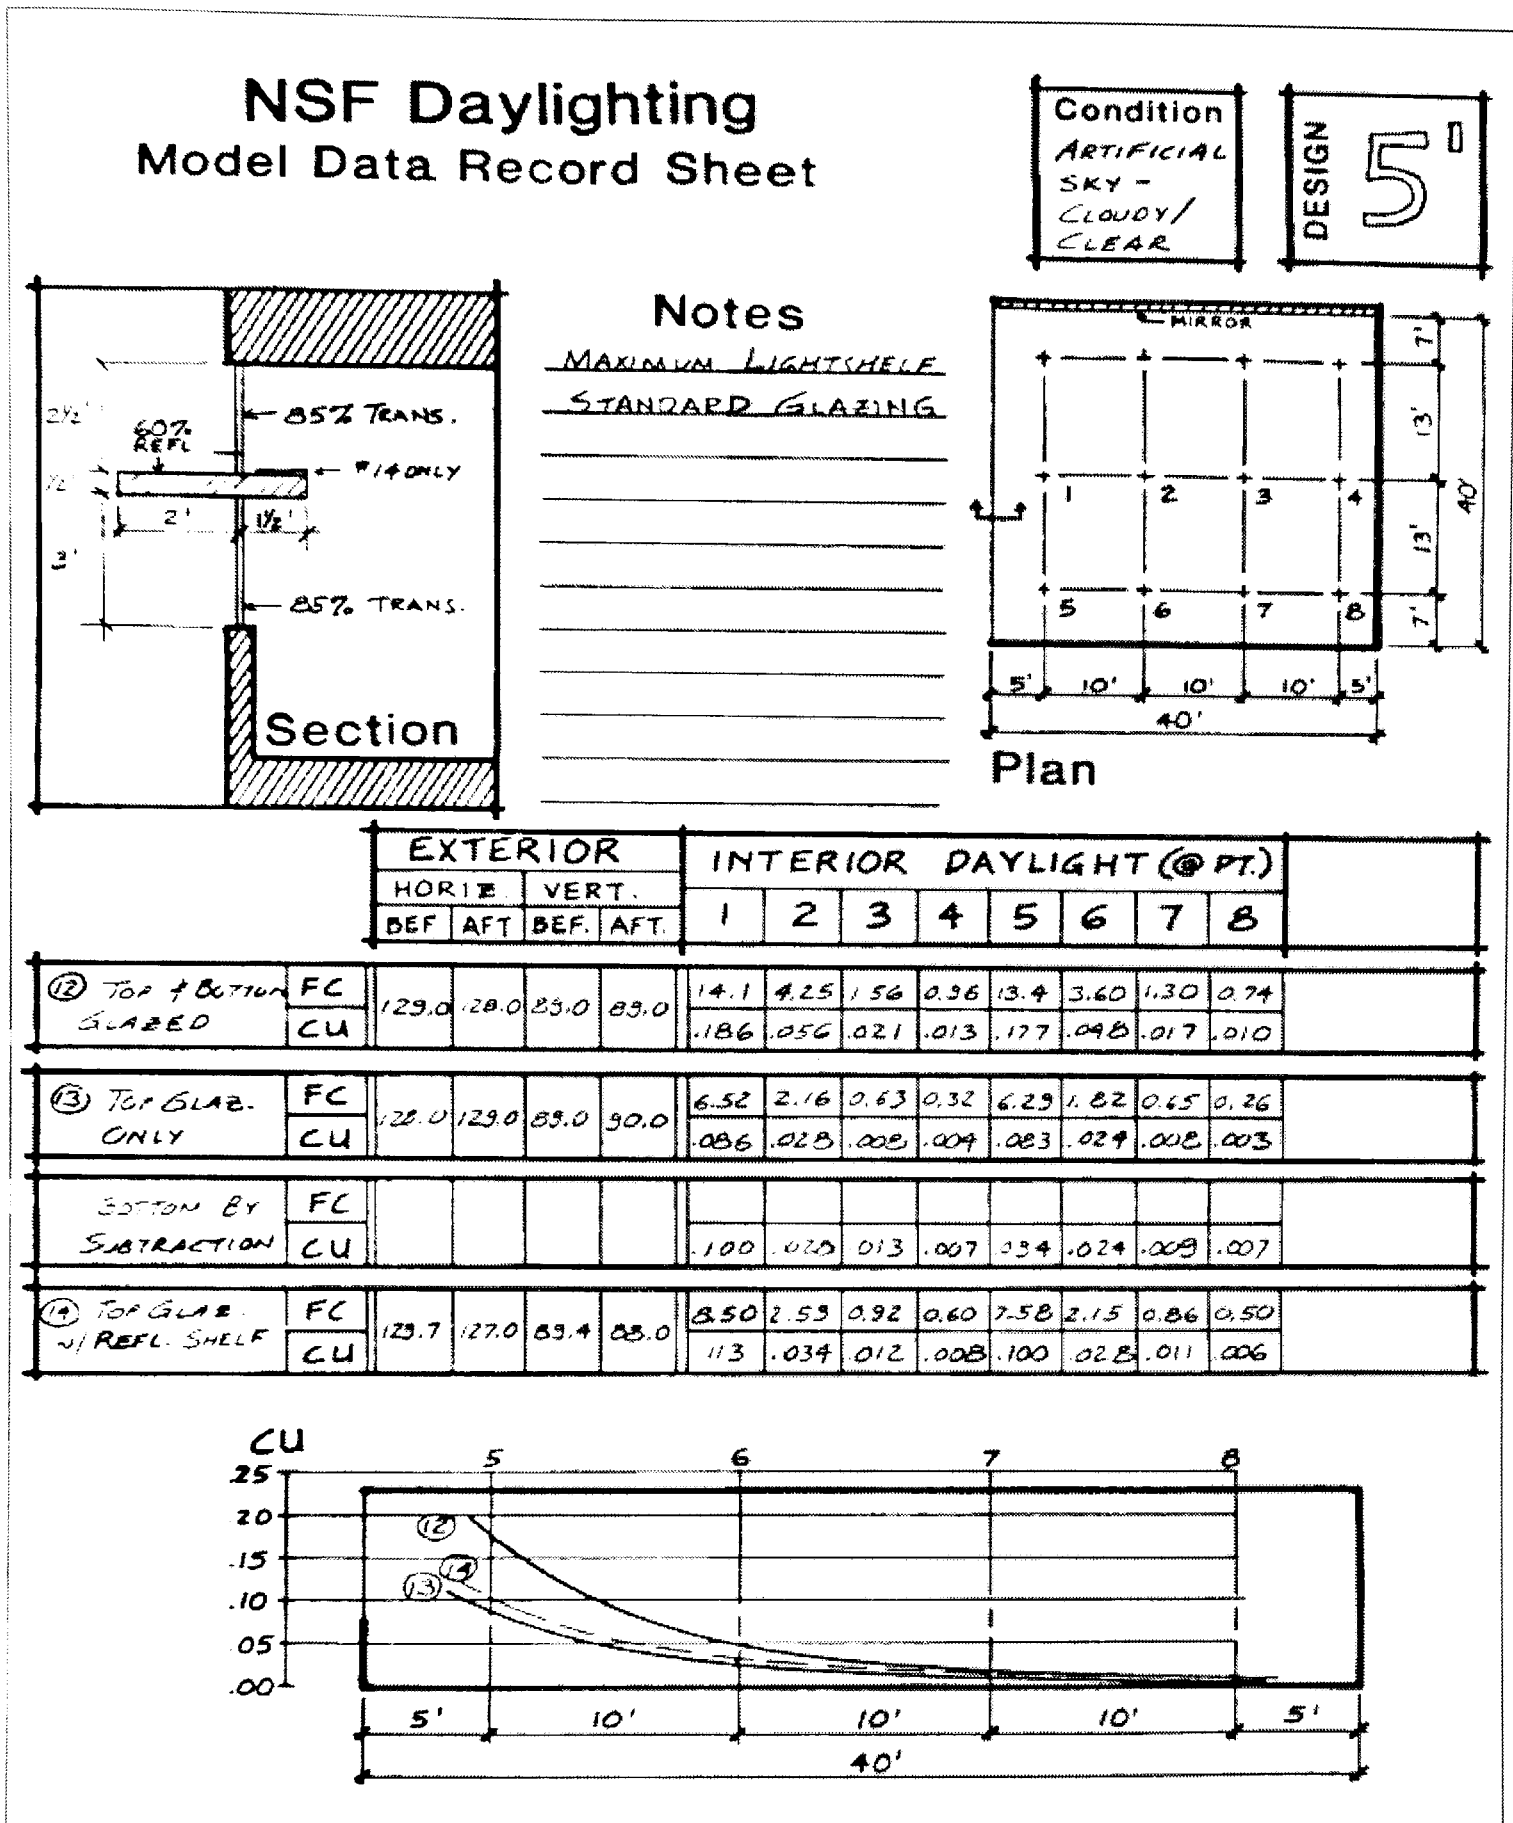 NSF Daylighting
Model Data Record Sheet
Condition
ARTIFICIAL
SKY -
CLOUDY/
CLEAR
DESIGN
5'
2½'
60%
REFL
85% TRANS.
#14 ONLY
½'
2'
1½'
85% TRANS.
Section
Notes
MAXIMUM LIGHTSHELF
STANDARD GLAZING
MIRROR
7'
13'
13'
7'
40'
1 2 3 4
5 6 7 8
5' 10' 10' 10' 5'
40'
Plan
EXTERIOR INTERIOR DAYLIGHT (@ PT.)
HORIZ. VERT.
BEF AFT BEF. AFT. 1 2 3 4 5 6 7 8
12 TOP & BOTTOM GLAZED
FC 129.0 128.0 89.0 89.0 14.1 4.25 1.56 0.96 13.4 3.60 1.30 0.74
CU .186 .056 .021 .013 .177 .048 .017 .010
13 TOP GLAZ. ONLY
FC 128.0 129.0 89.0 90.0 6.52 2.16 0.63 0.32 6.29 1.82 0.65 0.26
CU .086 .028 .008 .004 .083 .024 .008 .003
BOTTOM BY SUBTRACTION
FC
CU .100 .028 .013 .007 .094 .024 .009 .007
14 TOP GLAZ. W/ REFL. SHELF
FC 129.7 127.0 89.4 88.0 8.50 2.59 0.92 0.60 7.58 2.15 0.86 0.50
CU .113 .034 .012 .008 .100 .028 .011 .006
CU
5 6 7 8
.25
.20
.15
.10
.05
.00
12
14
13
5' 10' 10' 10' 5'
40'